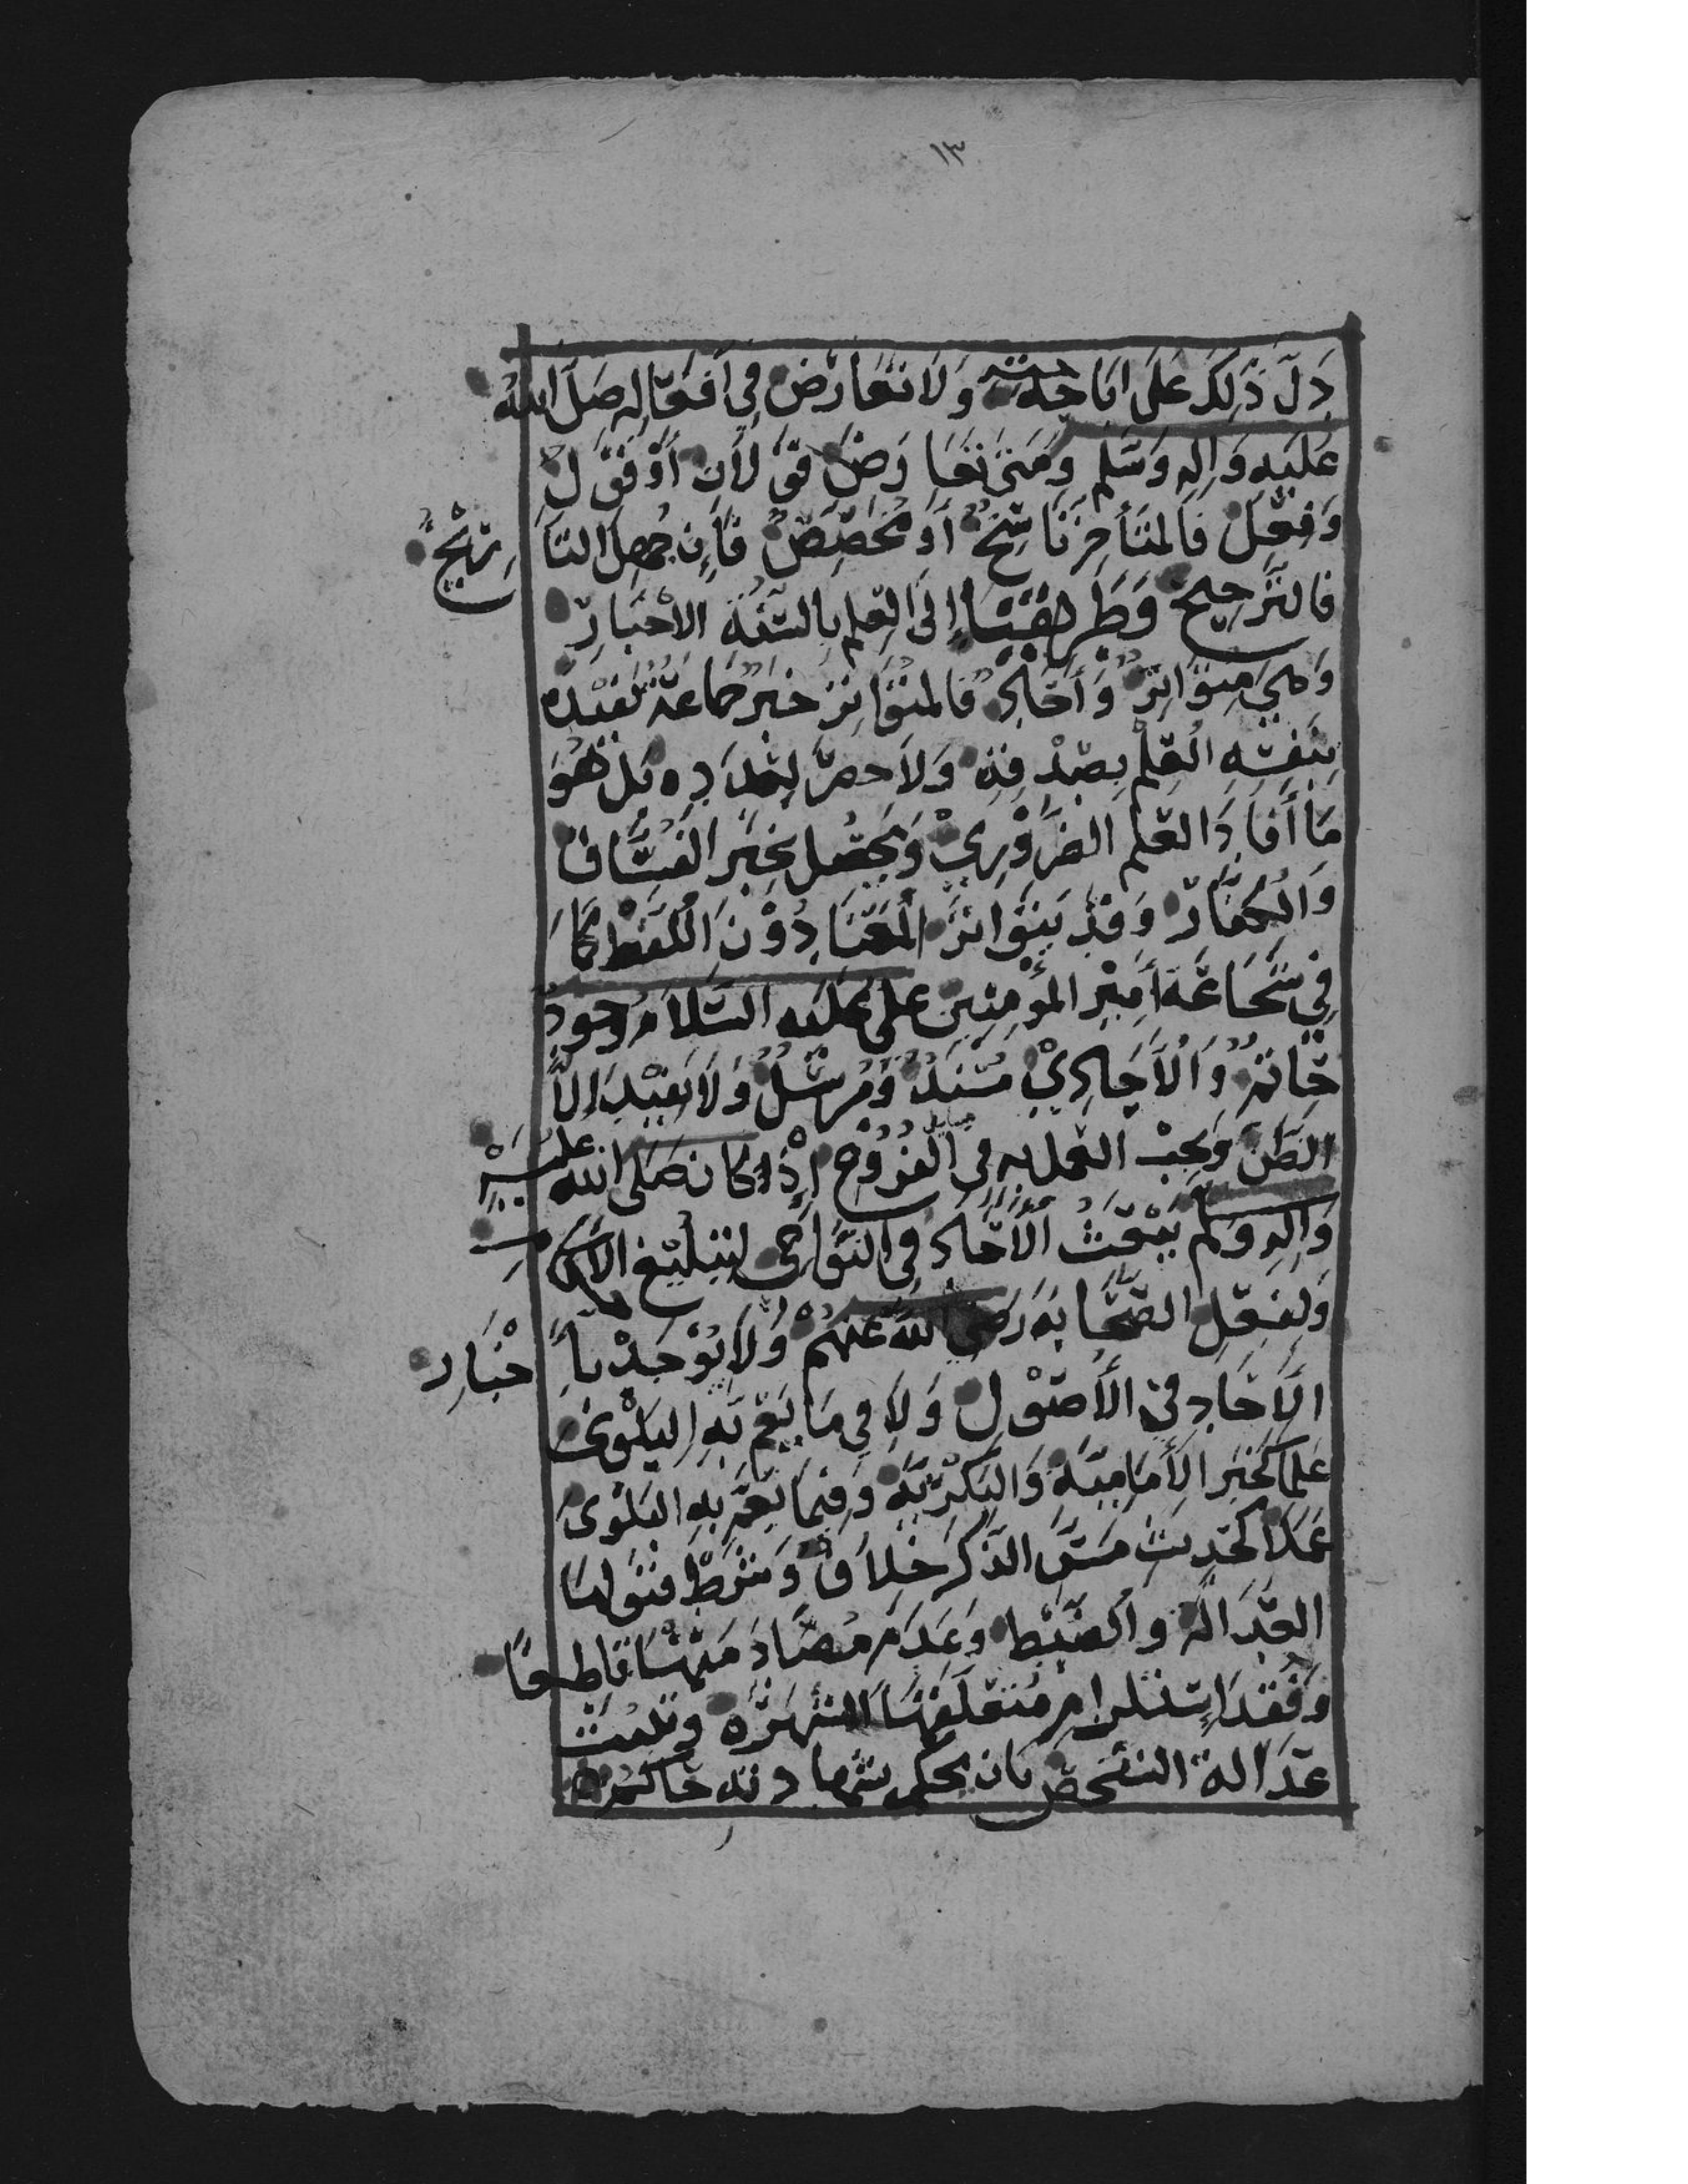 ١٣
دَلَّ ذَلِكَ عَلَى اِبَاحَتِهِ وَلَا تَعَارُضَ فِي أَفْعَالِهِ صَلَّى اللَّهُ
عَلَيْهِ وَآلِهِ وَسَلَّمَ وَمَتَى تَعَارَضَ قَوْلَانِ أَوْ قَوْلٌ
وَفِعْلٌ فَالْمُتَأَخِّرُ نَاسِخٌ أَوْ مُخَصِّصٌ فَإِنْ جُهِلَ التَّارِيْخُ
فَالتَّرْجِيحُ وَطَرِيقُنَا إِلَى الْعِلْمِ بِالسُّنَّةِ الْأَخْبَارُ
وَهِيَ مُتَوَاتِرٌ وَأَحَادٌ فَالْمُتَوَاتِرُ خَبَرُ جَمَاعَةٍ يُفِيْدُ
بِنَفْسِهِ الْعِلْمَ بِصِدْقِهِ وَلَا حَصْرَ لِعَدَدِهِ بَلْ هُوَ
مَا أَفَادَ الْعِلْمَ الضَّرُوْرِيْ وَيَحْصُلُ بِخَبَرِ الْفُسَّاقِ
وَالْكُفَّارِ وَقَدْ يَتَوَاتَرُ الْمَعْنَا دُوْنَ اللَّفْظِ كَمَا
فِي شَجَاعَةِ أَمِيْرِ الْمُؤْمِنِينَ عَلِي عَلَيْهِ السَّلَامُ وَجُودِ
حَاتِمٍ وَالْأَحَادِيْ مُسْنَدٌ وَمُرْسَلٌ وَلَا يُفِيْدُ إِلَّا
الظَّنَّ وَيَجِبُ الْعَمَلُ بِهِ فِي الْفُرُوْعِ إِذْ كَانَ صَلَّى اللَّهُ عَلَيْهِ
وَآلِهِ وَسَلَّمَ يَبْعَثُ الْأَحَادَ فِي النَّوَاحِي لِتَبْلِيْغِ الْأَحْكَامِ
وَلِفِعْلِ الصَّحَابَةِ رَضِيَ اللَّهُ عَنْهُمْ وَلَا يُؤْخَذُ بِأَخْبَارِ
الْآحَادِ فِي الْأُصُوْلِ وَلَا فِي مَا يَعُمُّ بِهِ الْبَلْوَى
عِلْمًا كَخَبَرِ الْإِمَامِيَّةِ وَالْبَكْرِيَّةِ وَفِيمَا يَعُمُّ بِهِ الْبَلْوَى
عَمَلًا كَحَدِيثِ مَسِّ الذَّكَرِ خِلَافٌ وَشَرْطُ قَبُولِهَا
الْعَدَالَةُ وَالضَّبْطُ وَعَدَمُ مُصَادَمَتِهَا قَاطِعًا
وَفَقْدُ اِسْتِلْزَامِ مُتَعَلَّقِهَا الشُّهْرَةَ وَتَثْبُتُ
عَدَالَةُ الشَّخْصِ بِأَنْ يَحْكُمَ بِشَهَادَتِهِ حَاكِمٌ